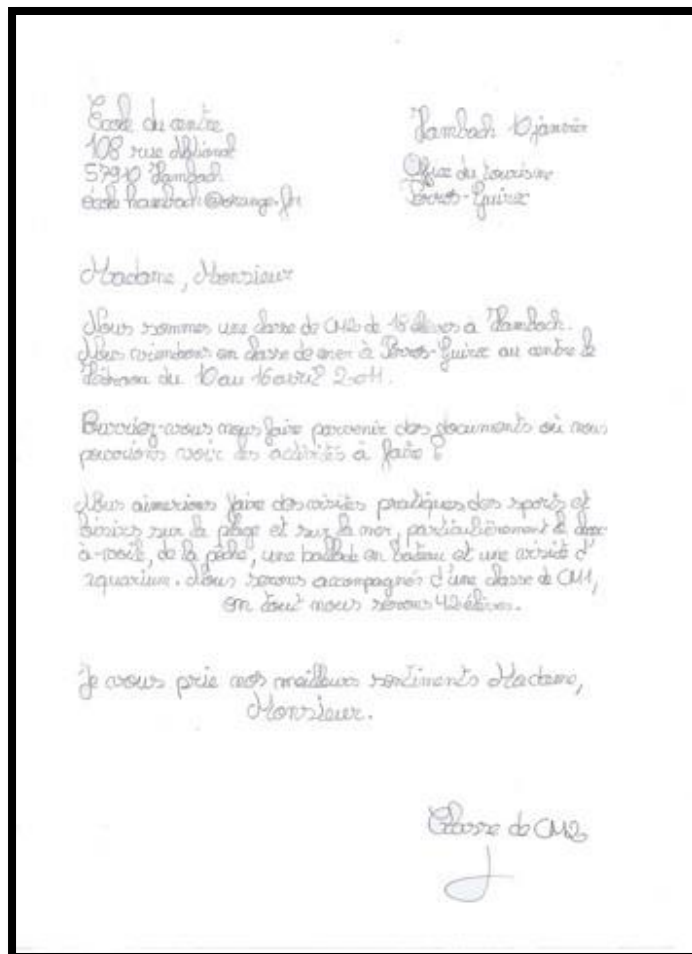 École du centre
108 rue National
57910 Hambach
école hambach@orange.fr
Hambach 10 janvier
Office du tourisme
Perros-Guirec
Madame, Monsieur
Nous sommes une classe de CM2 de élèves à Hambach.
Nous viendrons en classe de mer à Perros-Guirec au centre de
du 10 au 16 avril 2011.
Pourriez-vous nous faire parvenir des documents où nous
pourrions voir les activités à faire ?
Nous aimerions faire des visites pratiques des sports et
loisirs sur la plage et sur la mer, particulièrement le char-
à-voile, de la pêche, une ballade en bateau et une visite d'
aquarium. Nous serons accompagnés d'une classe de CM1,
en tout nous serons 42 élèves.
Je vous prie nos meilleurs sentiments Madame,
Monsieur.
Classe de CM2